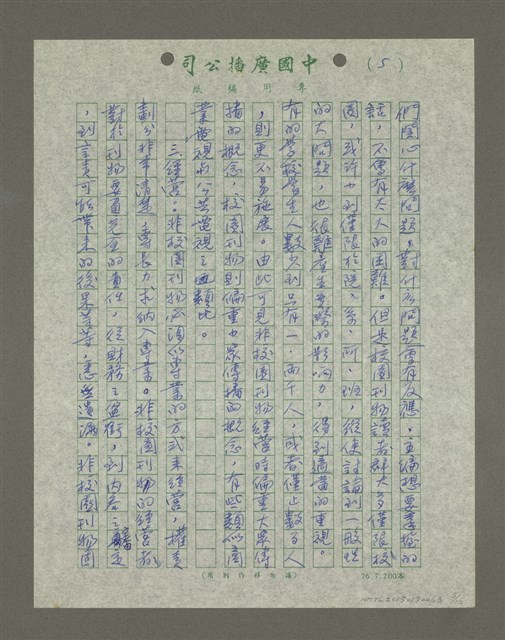 (5)
中國廣播公司
專用稿紙
們關心什麼問題，對什麼問題會有反應。主編想要掌握的
話，不會有太大的困難。但是校園刊物讀者群大多僅限校
園，或許也僅限於院、系、所、班，縱使討論到一般性
的大問題，也很難產生多大的影响力，得到適當的重視。
有的學校學生人數少到只有一、兩千人，或者僅止數百人
，則更不易施展。由此可見非校園刊物經營時偏重大眾傳
播的概念，校園刊物則偏重小眾傳播的概念，有些類似商
業電視和公共電視之類比。
三、經營：非校園刊物必須以專業的方式來經營，權責
劃分非常清楚，專長力求納入專業。非校園刊物的經營者
對於刊物要負完全的責任，從財務之盈虧，到內容之審定
，到言責可能帶來的後果等等，悉無遺漏。非校園刊物因
76.7.200本